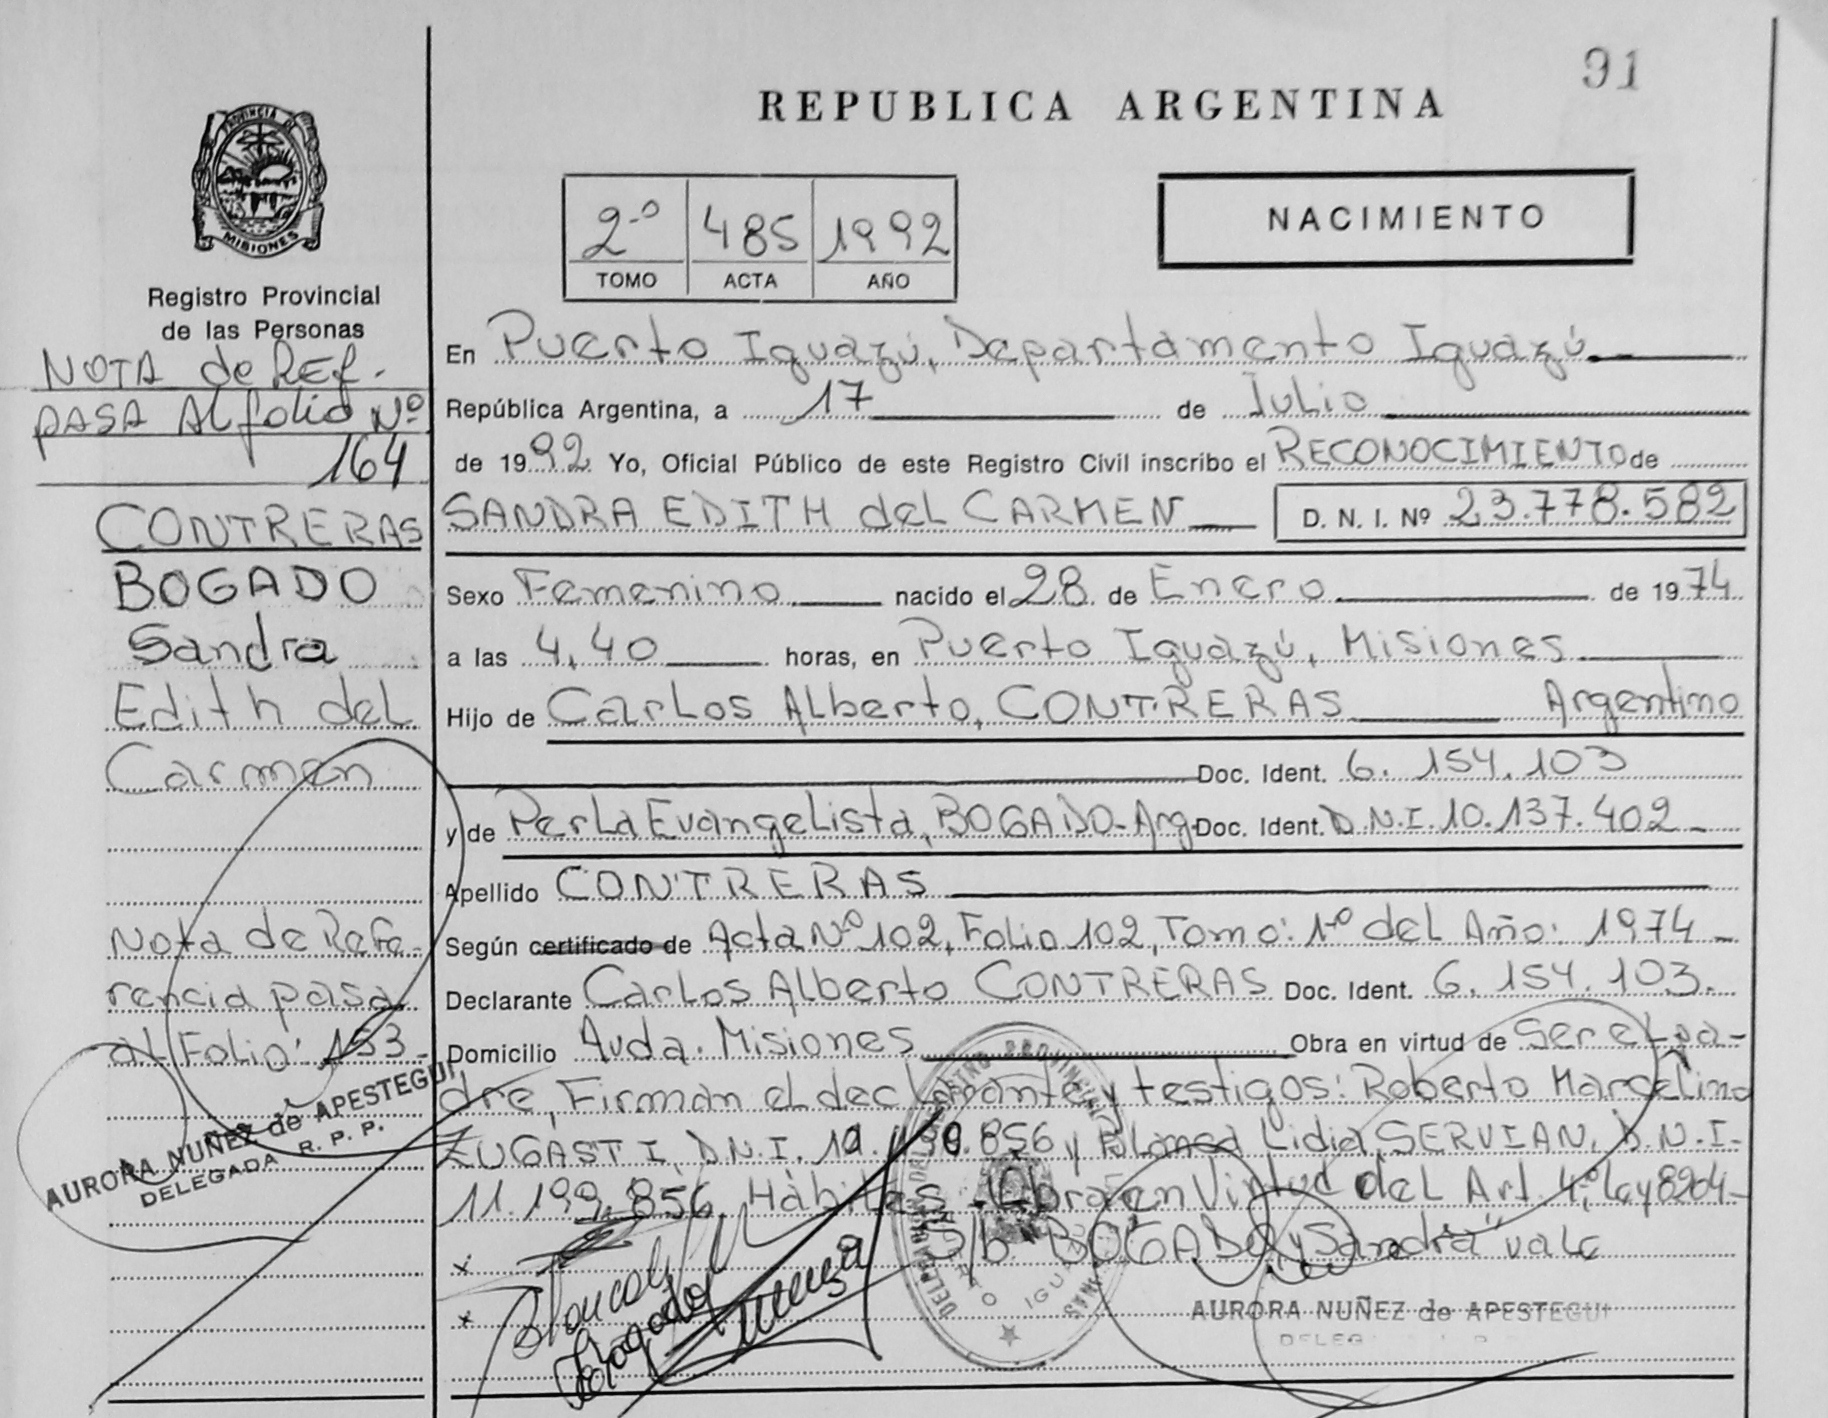 91
REPUBLICA ARGENTINA
PROVINCIA DE
MISIONES
Registro Provincial
de las Personas
NOTA de REF.
PASA AL folio Nº
164
CONTRERAS
BOGADO
Sandra
Edith del
Carmen
Nota de Refe-
rencia pasa
al Folio: 153-
AURORA NUÑEZ de APESTEGUI
DELEGADA R. P. P.
2º 485 1992
TOMO ACTA AÑO
NACIMIENTO
En Puerto Iguazú, Departamento Iguazú
República Argentina, a 17 de Julio
de 1992 Yo, Oficial Público de este Registro Civil inscribo el RECONOCIMIENTO de
SANDRA EDITH del CARMEN D. N. I. Nº 23.778.582
Sexo Femenino nacido el 28 de Enero de 1974
a las 4,40 horas, en Puerto Iguazú, Misiones
Hijo de Carlos Alberto, CONTRERAS Argentino
Doc. Ident. 6.154.103
y de Perla Evangelista, BOGADO-Arg. Doc. Ident. D.N.I. 10.137.402-
Apellido CONTRERAS
Según certificado de Acta Nº 102, Folio 102, Tomo: 1º del Año: 1974-
Declarante Carlos Alberto CONTRERAS Doc. Ident. 6.154.103.
Domicilio Avda. Misiones Obra en virtud de Ser el pa-
dre, Firman el declarante y testigos: Roberto Marcelino
ZUGASTI, D.N.I. y Lidia, SERVIAN, D.N.I-
11.199.856, Hábiles - Obra en Virtud del Art. 4º Ley 8204-
S/b. BOGADO y Sandra" vale
AURORA NUÑEZ de APESTEGUI